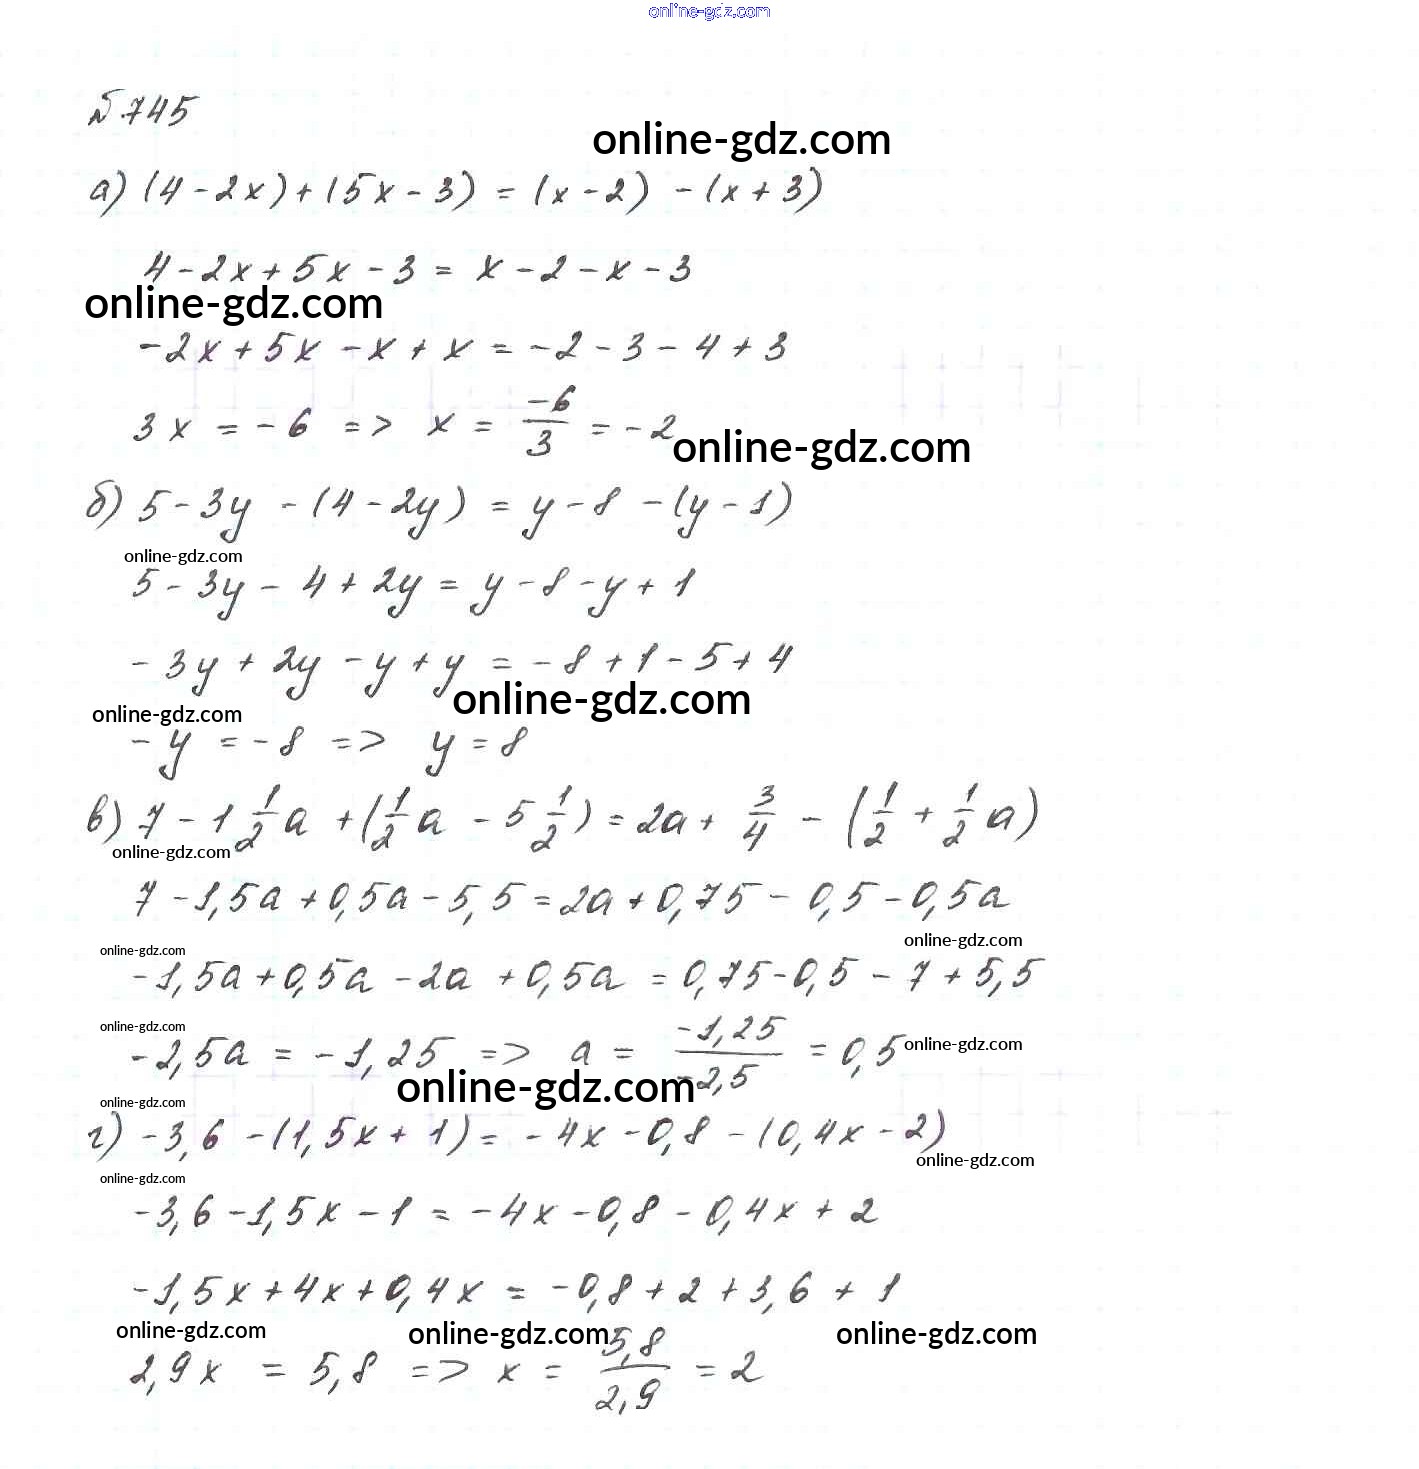 online-gdz.com
№ 745
online-gdz.com
а) (4 - 2x) + (5x - 3) = (x - 2) - (x + 3)
4 - 2x + 5x - 3 = x - 2 - x - 3
online-gdz.com
-2x + 5x - x + x = -2 - 3 - 4 + 3
3x = -6 => x = -6/3 = -2
online-gdz.com
б) 5 - 3y - (4 - 2y) = y - 8 - (y - 1)
online-gdz.com
5 - 3y - 4 + 2y = y - 8 - y + 1
-3y + 2y - y + y = -8 + 1 - 5 + 4
online-gdz.com online-gdz.com
-y = -8 => y = 8
в) 7 - 1 1/2 a + (1/2 a - 5 1/2) = 2a + 3/4 - (1/2 + 1/2 a)
online-gdz.com
7 - 1,5a + 0,5a - 5,5 = 2a + 0,75 - 0,5 - 0,5a
online-gdz.com online-gdz.com
-1,5a + 0,5a - 2a + 0,5a = 0,75 - 0,5 - 7 + 5,5
online-gdz.com online-gdz.com
-2,5a = -1,25 => a = -1,25/-2,5 = 0,5
online-gdz.com
online-gdz.com
г) -3,6 - (1,5x + 1) = -4x - 0,8 - (0,4x - 2)
online-gdz.com
online-gdz.com
-3,6 - 1,5x - 1 = -4x - 0,8 - 0,4x + 2
-1,5x + 4x + 0,4x = -0,8 + 2 + 3,6 + 1
online-gdz.com online-gdz.com online-gdz.com
2,9x = 5,8 => x = 5,8/2,9 = 2